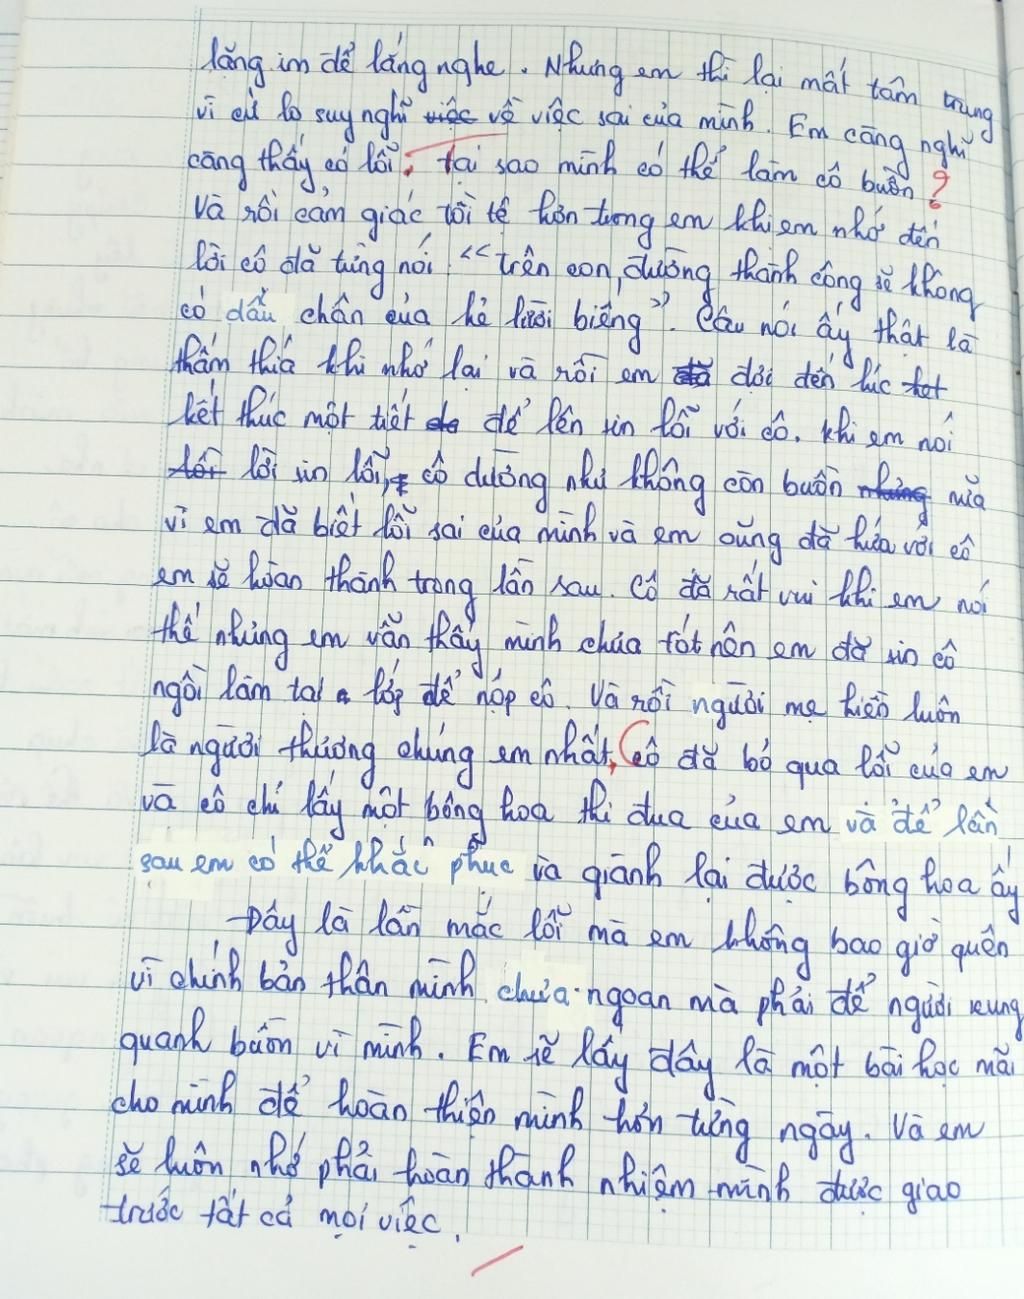 lặng im để lắng nghe. Nhưng em thì lại mất tâm trung
vì cứ lo suy nghĩ việc về việc sai của mình. Em càng nghĩ
càng thấy có lỗi: tại sao mình có thể làm cô buồn?
Và rồi cảm giác tồi tệ hơn trong em khi em nhớ đến
lời cô đã từng nói "trên con đường thành công sẽ không
có dấu chân của kẻ lười biếng". Câu nói ấy thật là
thấm thía khi nhớ lại và rồi em đã đợi đến lúc
kết thúc một tiết để lên xin lỗi với cô. Khi em nói
lời xin lỗi, cô dường như không còn buồn nhưng nữa
vì em đã biết lỗi sai của mình và em cũng đã hứa với cô
em sẽ hoàn thành trong lần sau. Cô đã rất vui khi em nói
thế nhưng em vẫn thấy mình chưa tốt nên em đã xin cô
ngồi làm tại lớp để nộp cô. Và rồi người mẹ hiền luôn
là người thương chúng em nhất, cô đã bỏ qua lỗi của em
và cô chỉ lấy một bông hoa thi đua của em và để lần
sau em có thể khắc phục và giành lại được bông hoa ấy
Đây là lần mắc lỗi mà em không bao giờ quên
vì chính bản thân mình chưa ngoan mà phải để người xung
quanh buồn vì mình. Em sẽ lấy đây là một bài học mãi
cho mình để hoàn thiện mình hơn từng ngày. Và em
sẽ luôn nhớ phải hoàn thành nhiệm mình được giao
trước tất cả mọi việc.